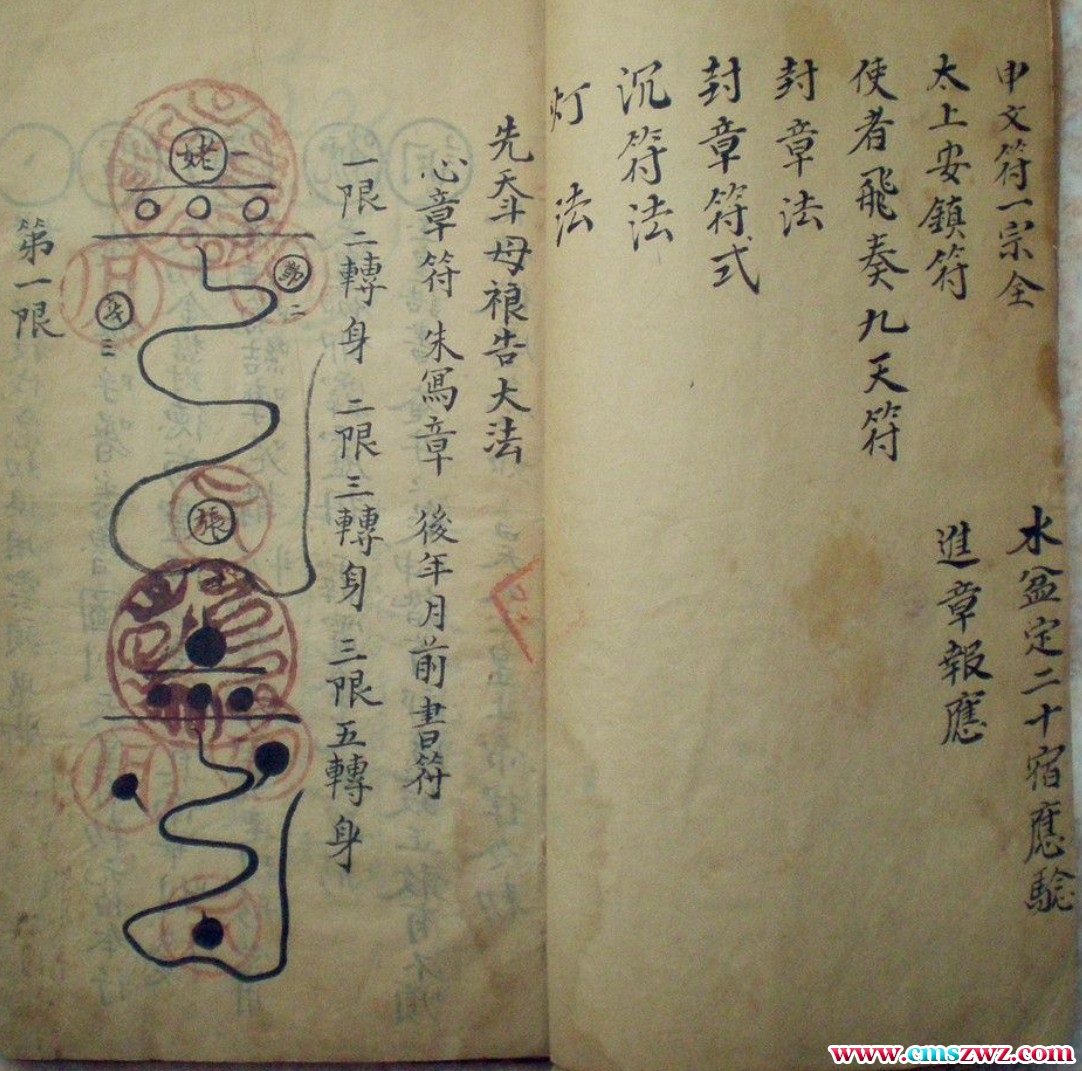 申文符一宗全
太上安鎮符
使者飛奏九天符
封章法
封章符式
沉符法
灯法
水盆定二十宿應驗
進章報應
先天斗母禳告大法
心章符 朱寫章 後年月前書符
一限二轉身 二限三轉身 三限五轉身
姥 一
二
三
張
第一限
www.cmszwz.com